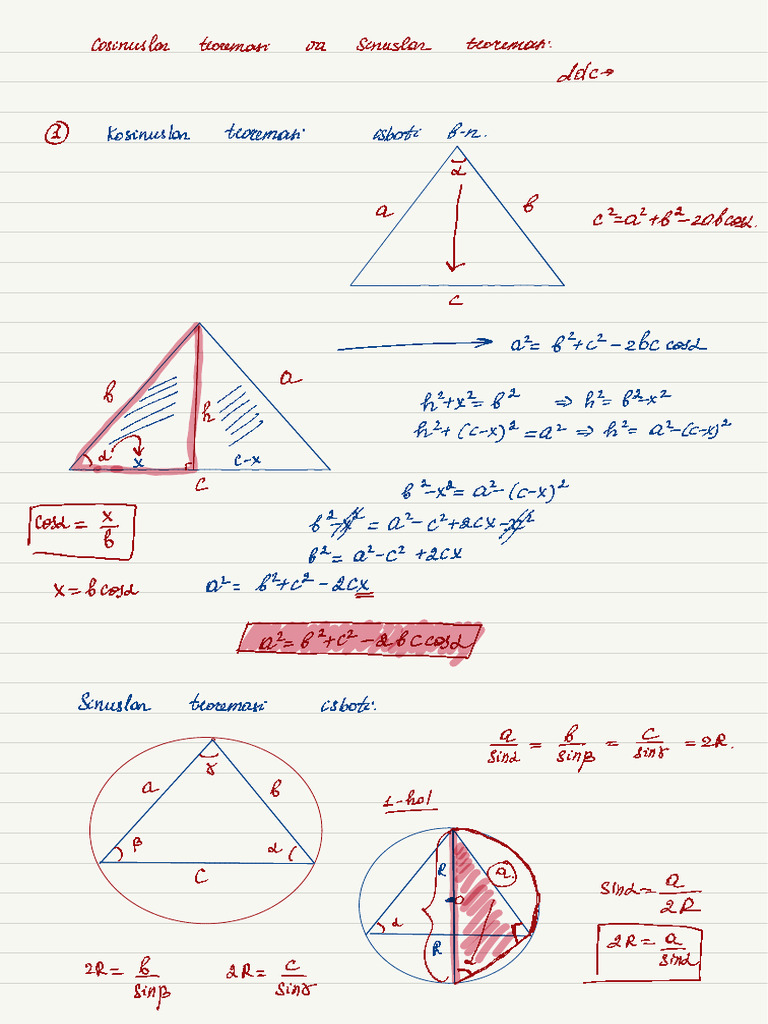 Cosinuslar teoremasi va Sinuslar teoremasi.
① Kosinuslar teoremasi isboti
α
a
b
c
c²=a²+b²-2abcosα.
a²= b²+c²-2bc cosα
b
a
h
α
x
c-x
c
h²+x²=b² ⇒ h²=b²-x²
h²+(c-x)²=a² ⇒ h²= a²-(c-x)²
b²-x²=a²-(c-x)²
cosα = x/b
b²-x² = a²-c²+2cx-x²
b²= a²-c²+2cx
x=bcosα
a²= b²+c²-2cx
a²=b²+c²-2bccosα
Sinuslar teoremasi isboti:
a/sinα = b/sinβ = c/sinγ =2R.
γ
a
b
β
α
c
1-hol
R
a
α
R
α
sinα= a/2R
2R= a/sinα
2R= b/sinβ
2R= c/sinγ